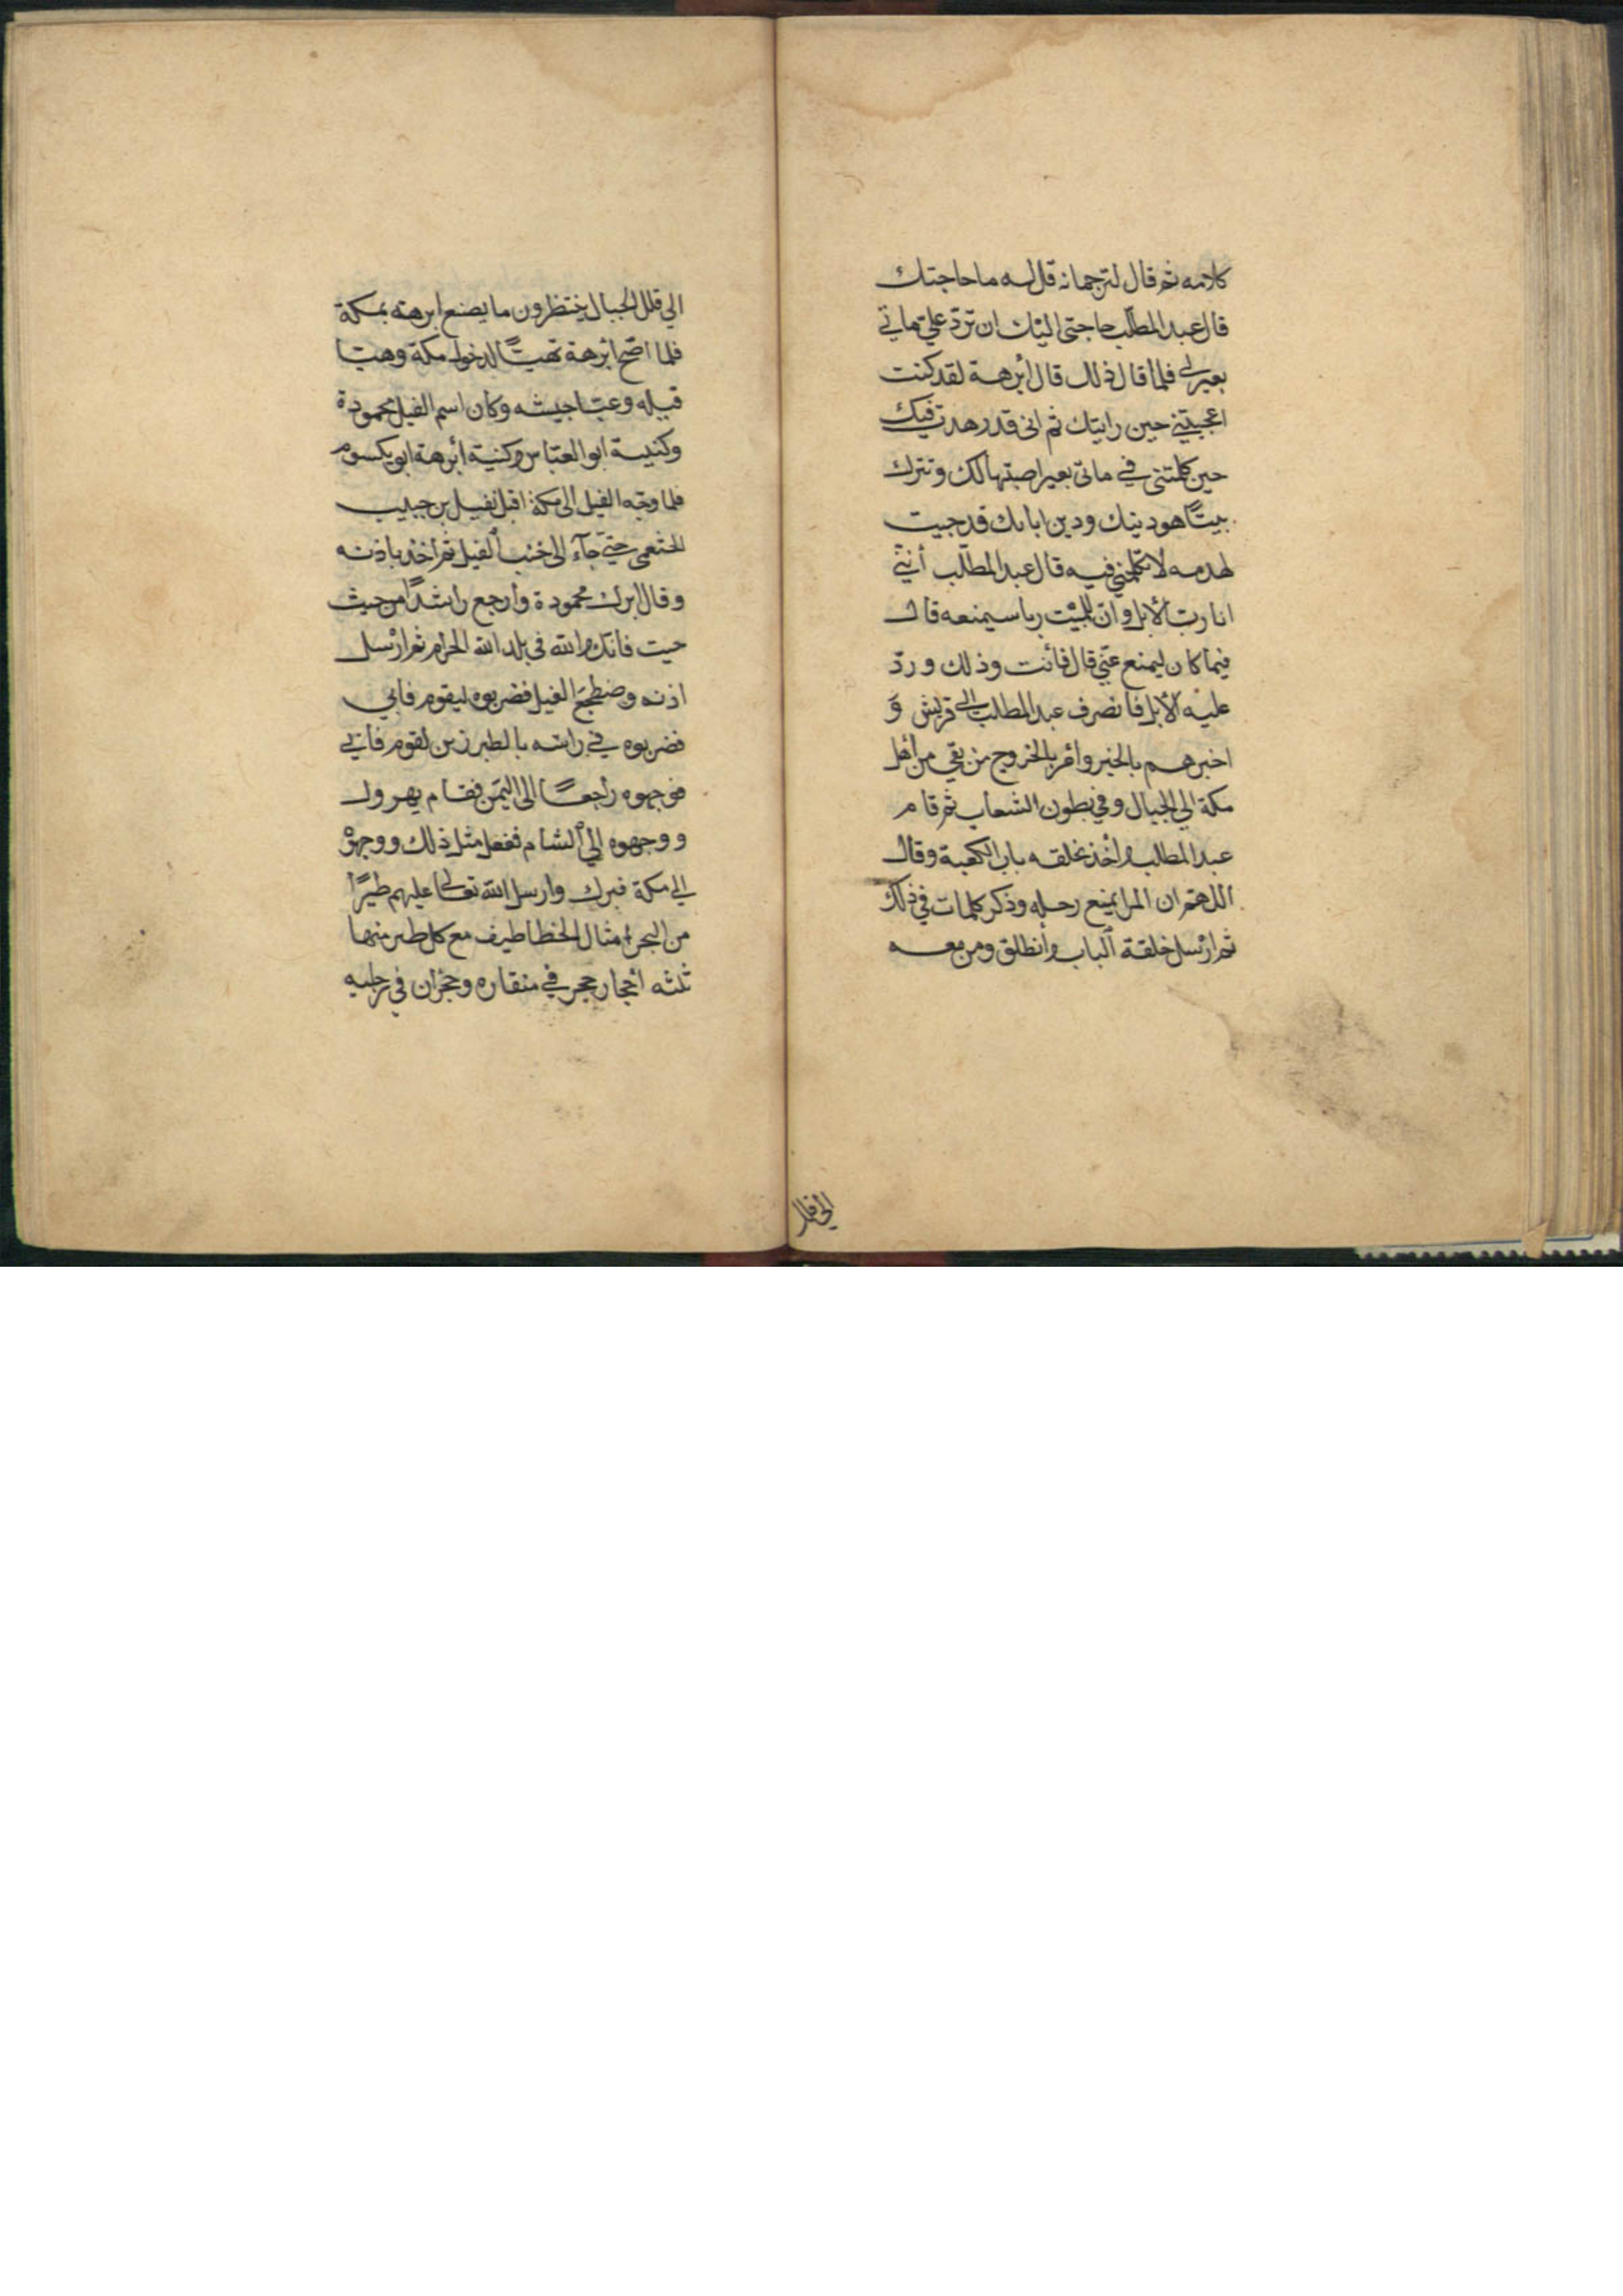 كلامه ثم قال لترجمانه قل له ما حاجتك
قال عبد المطلب حاجتى اليك ان تردّ علىّ مأتي
بعير لي فلما قال ذلك قال أبرهة لقد كنت
اعجبتني حين رايتك ثم انى قد زهدت فيك
حين كلمتنى في مأتى بعير اصبتها لك وتترك
بيتًا هو دينك ودين ابائك قد جيت
لهدمه لا تكلمني فيه قال عبد المطلب أنني
انا ربّ الأبل وان للبيْت ربا سيمنعه قال
فما كان ليمنع عنّي قال فأنت وذلك وردّ
عليْه الأبل فانصرف عبد المطلب الى قريش وَ
اخبرهم بالخبر وأمر بالخروج من بقي من أهل
مكة الي الجبال وفي بطون الشعاب ثم قام
عبد المطلب وأخذ بحلقه باب الكعبة وقال
اللهم ان المرا يمنع رحله وذكر كلمات في ذلك
ثم ارْسل حلقة ألباب وأنطلق ومن معه
الي قلل
الي قلل الجبال ينتظرون ما يصنع ابرهة بمكة
فلما اصبح ابْرهة تهيّأ لدخول مكة وهيّا
فيله وعبّا جيشه وكان اسم الفيل محمودة
وكنيبة ابو العبّاس وكنية أبرهة ابو يكسوم
فلما وجّه الفيل الى مكة اقبل نفيل بن حبيب
الخثعمى حتىّ جآء الى جنب ألفيل ثم اخذ باذنه
وقال ابرك محمودة وأرجع راشدًا من حيث
جيت فانك والله في بلد الله الحرام ثم ارْسل
اذنه وضطجع الفيل فضربوه ليقوم فابي
فضربوه في راسه بالطبرزين لقوم فابي
فوجهوه راجعًا الى اليَمَن فقام يهرول
ووجهوه إلي ألشام ففعل مثل ذلك ووجهوْ
الي مكة فبرك وارسل الله تعالى عليهم طيرًا
من البحر امثال الخطاطيف مع كل طير منها
ثلثه أحجار حجر في منقاره وحجران في رجليه